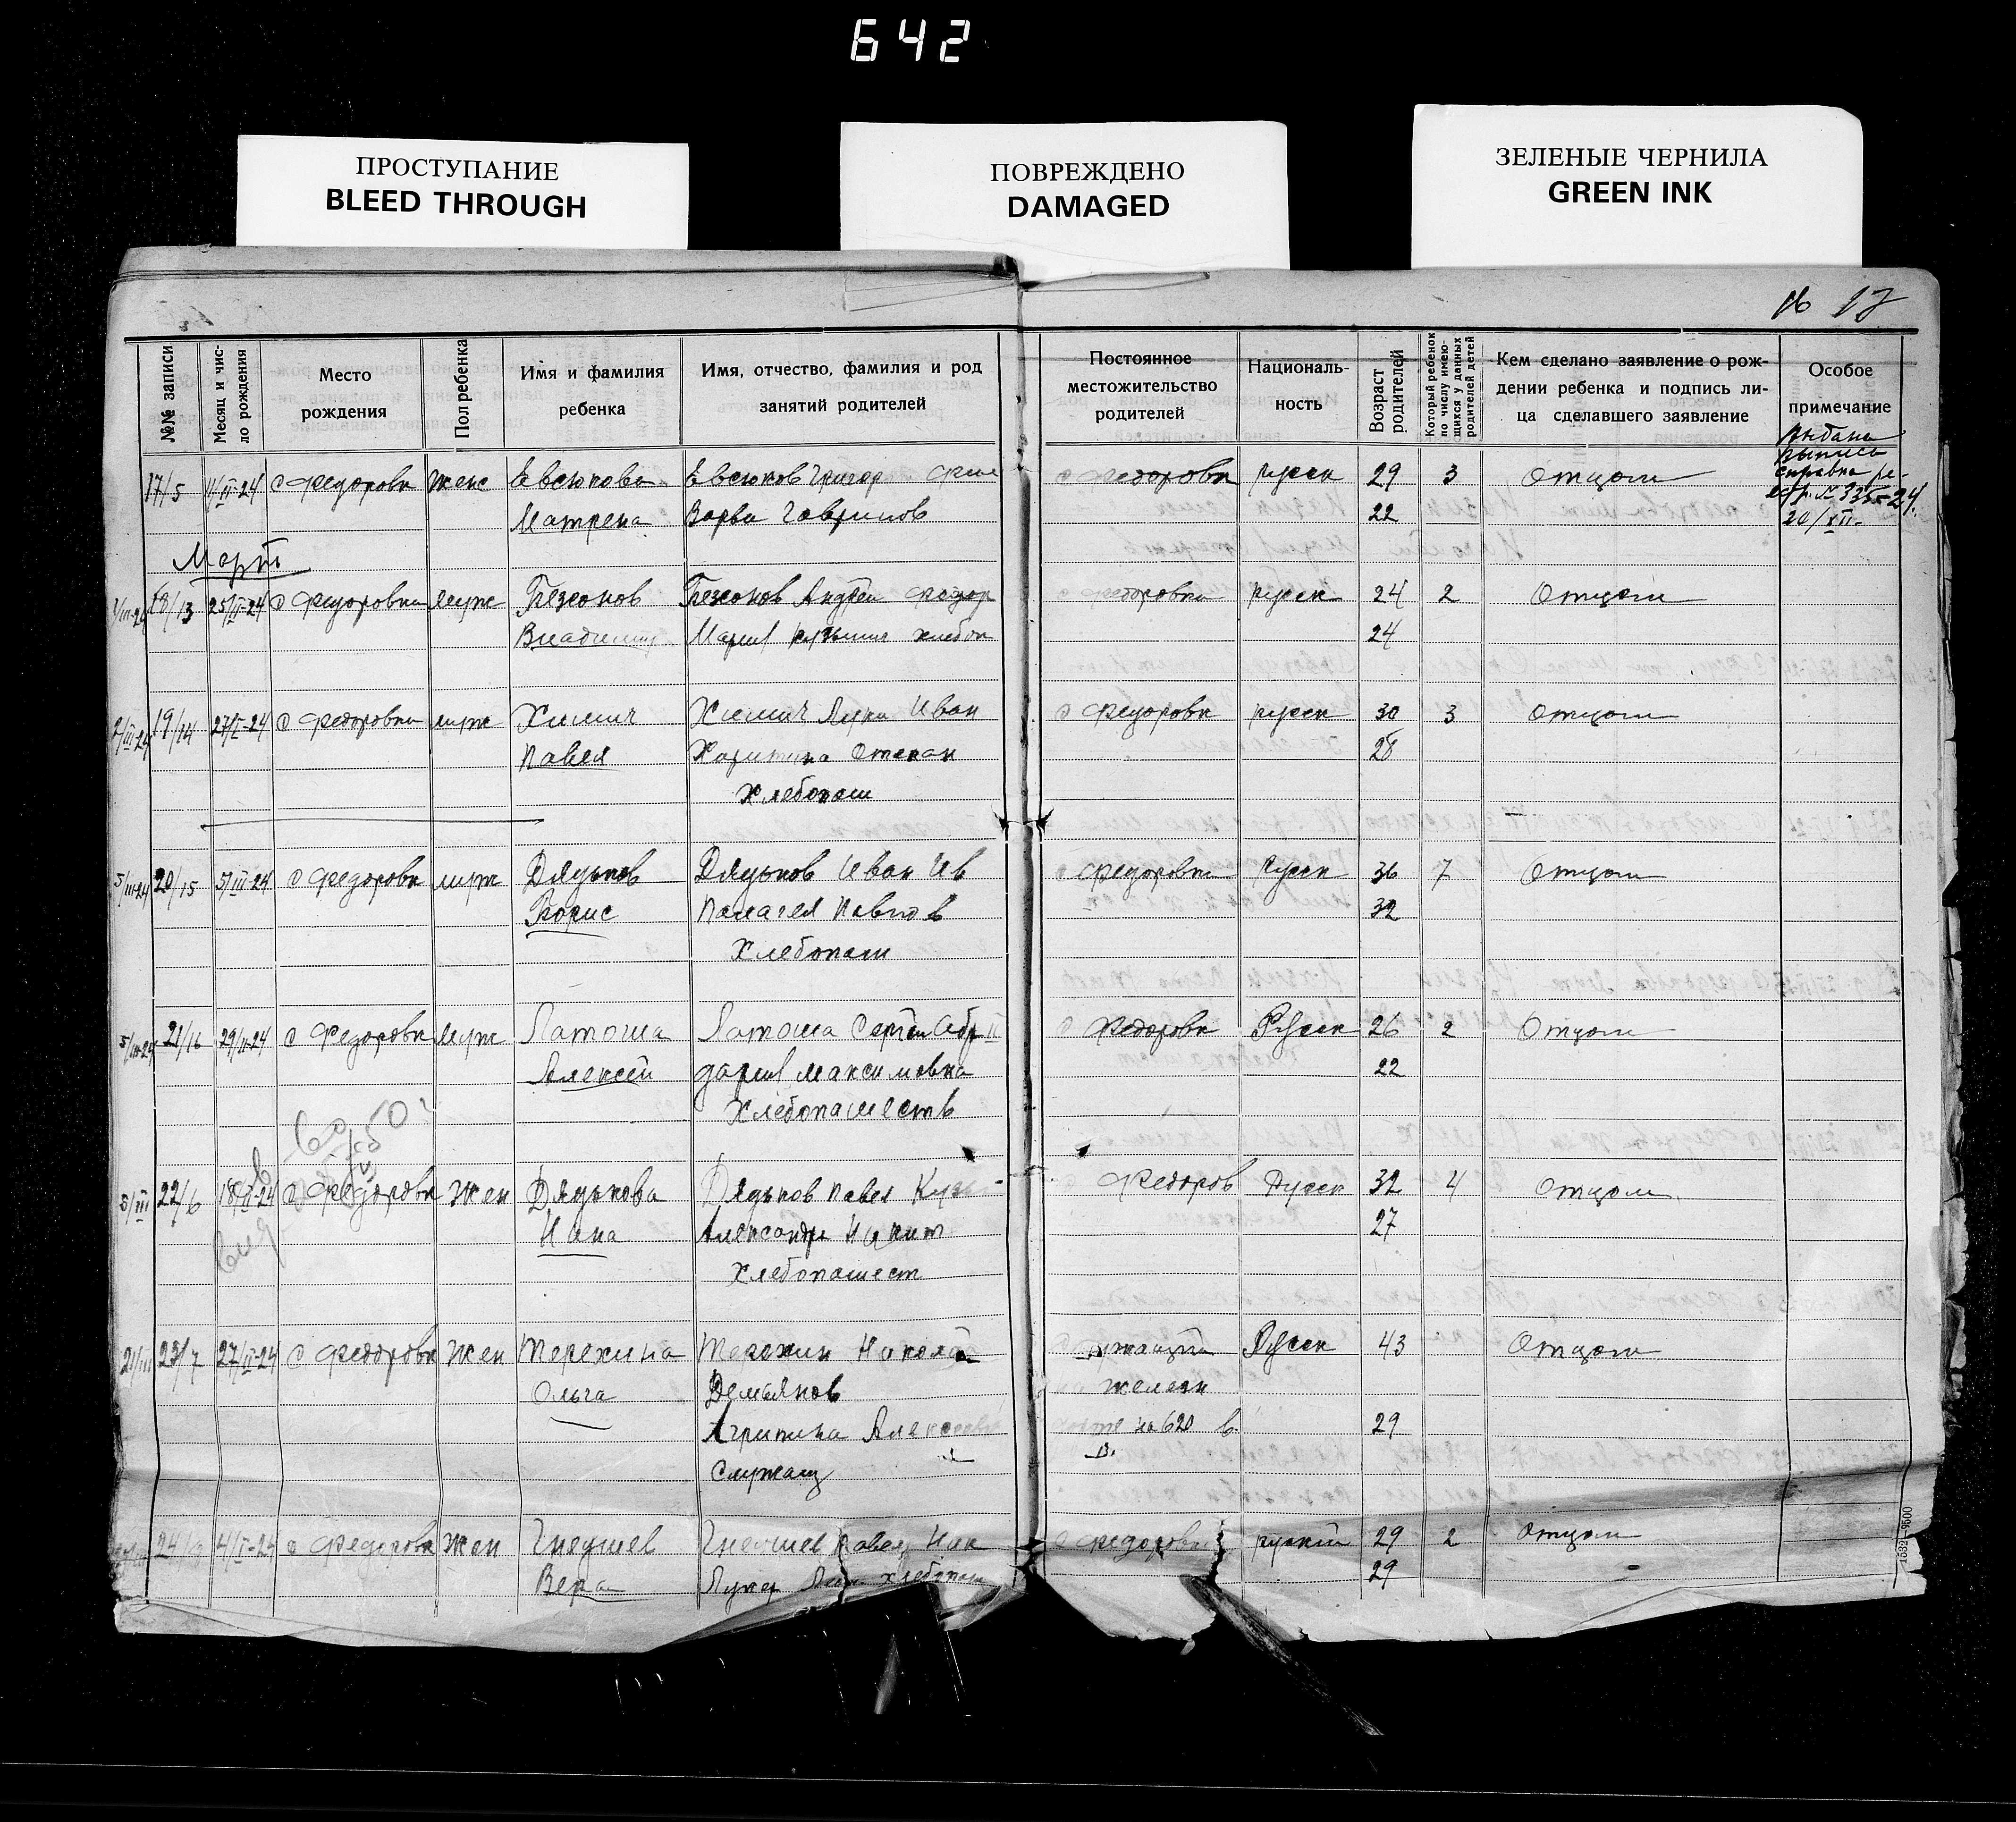 642
ПРОСТУПАНИЕ
BLEED THROUGH
ПОВРЕЖДЕНО
DAMAGED
ЗЕЛЕНЫЕ ЧЕРНИЛА
GREEN INK
16 17
№№ записи
Месяц и число рождения
Место рождения
Пол ребенка
Имя и фамилия ребенка
Имя, отчество, фамилия и род занятий родителей
Постоянное местожительство родителей
Националь-ность
Возраст родителей
Который ребенок по числу имею-щихся у данных родителей детей
Кем сделано заявление о рож-дении ребенка и подпись ли-ца сделавшего заявление
Особое примечание
Выдана
выпись
справка ре-
№ 335-24
20/XII
17/5 11/II-24 с Федоровка женс Евсюкова Евсюков Григор с Федоровка русск 29 3 Отцом
Матрена Варва Гаврилов 22
Март
1/III-24 18/13 25/II-24 с Федоровка муж Безсонов Безсонов Андрей Федор с Федоровка русск 24 2 Отцом
Владимир Мария Кузьмин хлебоп 24
2/III-24 19/14 27/I-24 с Федоровка муж Химич Химич Лука Иван с Федоровка русск 30 3 Отцом
Павел Харитина Степан 28
Хлебопаш
5/III-24 20/15 5/III-24 с Федоровка муж Дядьков Дядьков Иван Ив с Федоровка Русск 36 7 Отцом
Борис Палагея Павлов 32
Хлебопаш
5/III-24 21/16 29/II-24 с Федоровка муж Латоша Латоша Сергей с Федоровка Русск 26 2 Отцом
Алексей Дария Максимовна 22
Хлебопашеств
5/III 22/6 18/II-24 с Федоровка Жен Дядькова Дядьков Павел Кузь Федоров Русск 32 4 Отцом
Нина Александр Никит 27
Хлебопашест
23/7 27/II-24 с Федоровка Жен Терехина Терехин Николай Русск 43 Отцом
Ольга Демьянов железн
Агрипина Алексеев на 620 в. 29
Служащ
24/8 с Федоровка Жен Гнедшев Павел Ник с Федоровка русский 29 2 Отцом
Вера хлебопаш 29
1532—9500